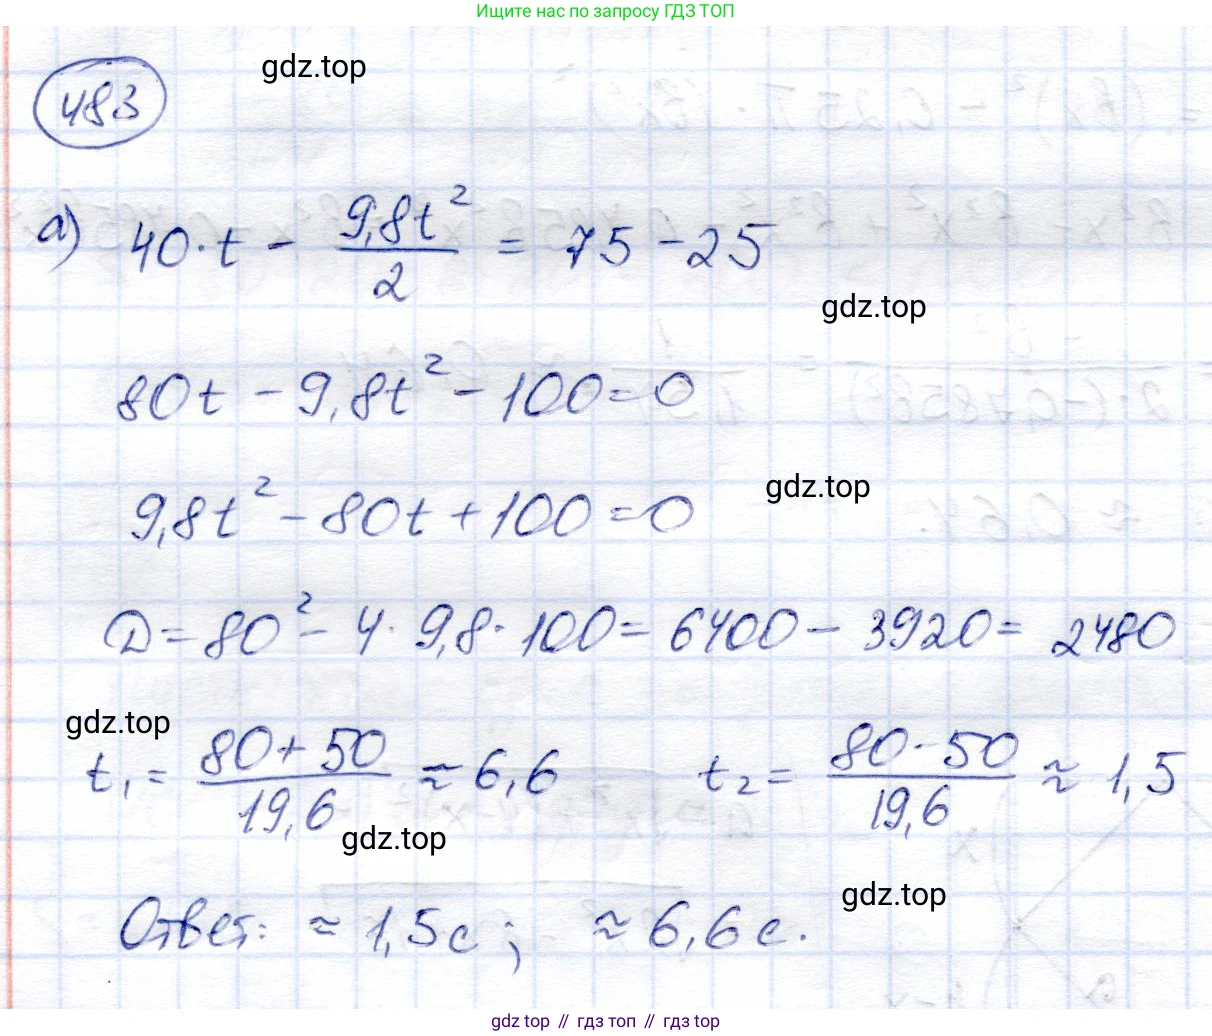 Ищите нас по запросу ГДЗ ТОП
gdz.top
483
а) 40·t - 9,8t²/2 = 75 - 25
gdz.top
80t - 9,8t² - 100 = 0
gdz.top
9,8t² - 80t + 100 = 0
D = 80² - 4·9,8·100 = 6400 - 3920 = 2480
gdz.top
t₁ = (80+50)/19,6 ≈ 6,6 t₂ = (80-50)/19,6 ≈ 1,5
gdz.top
gdz.top
Ответ: ≈ 1,5 с; ≈ 6,6 с.
gdz top // гдз топ // gdz.top